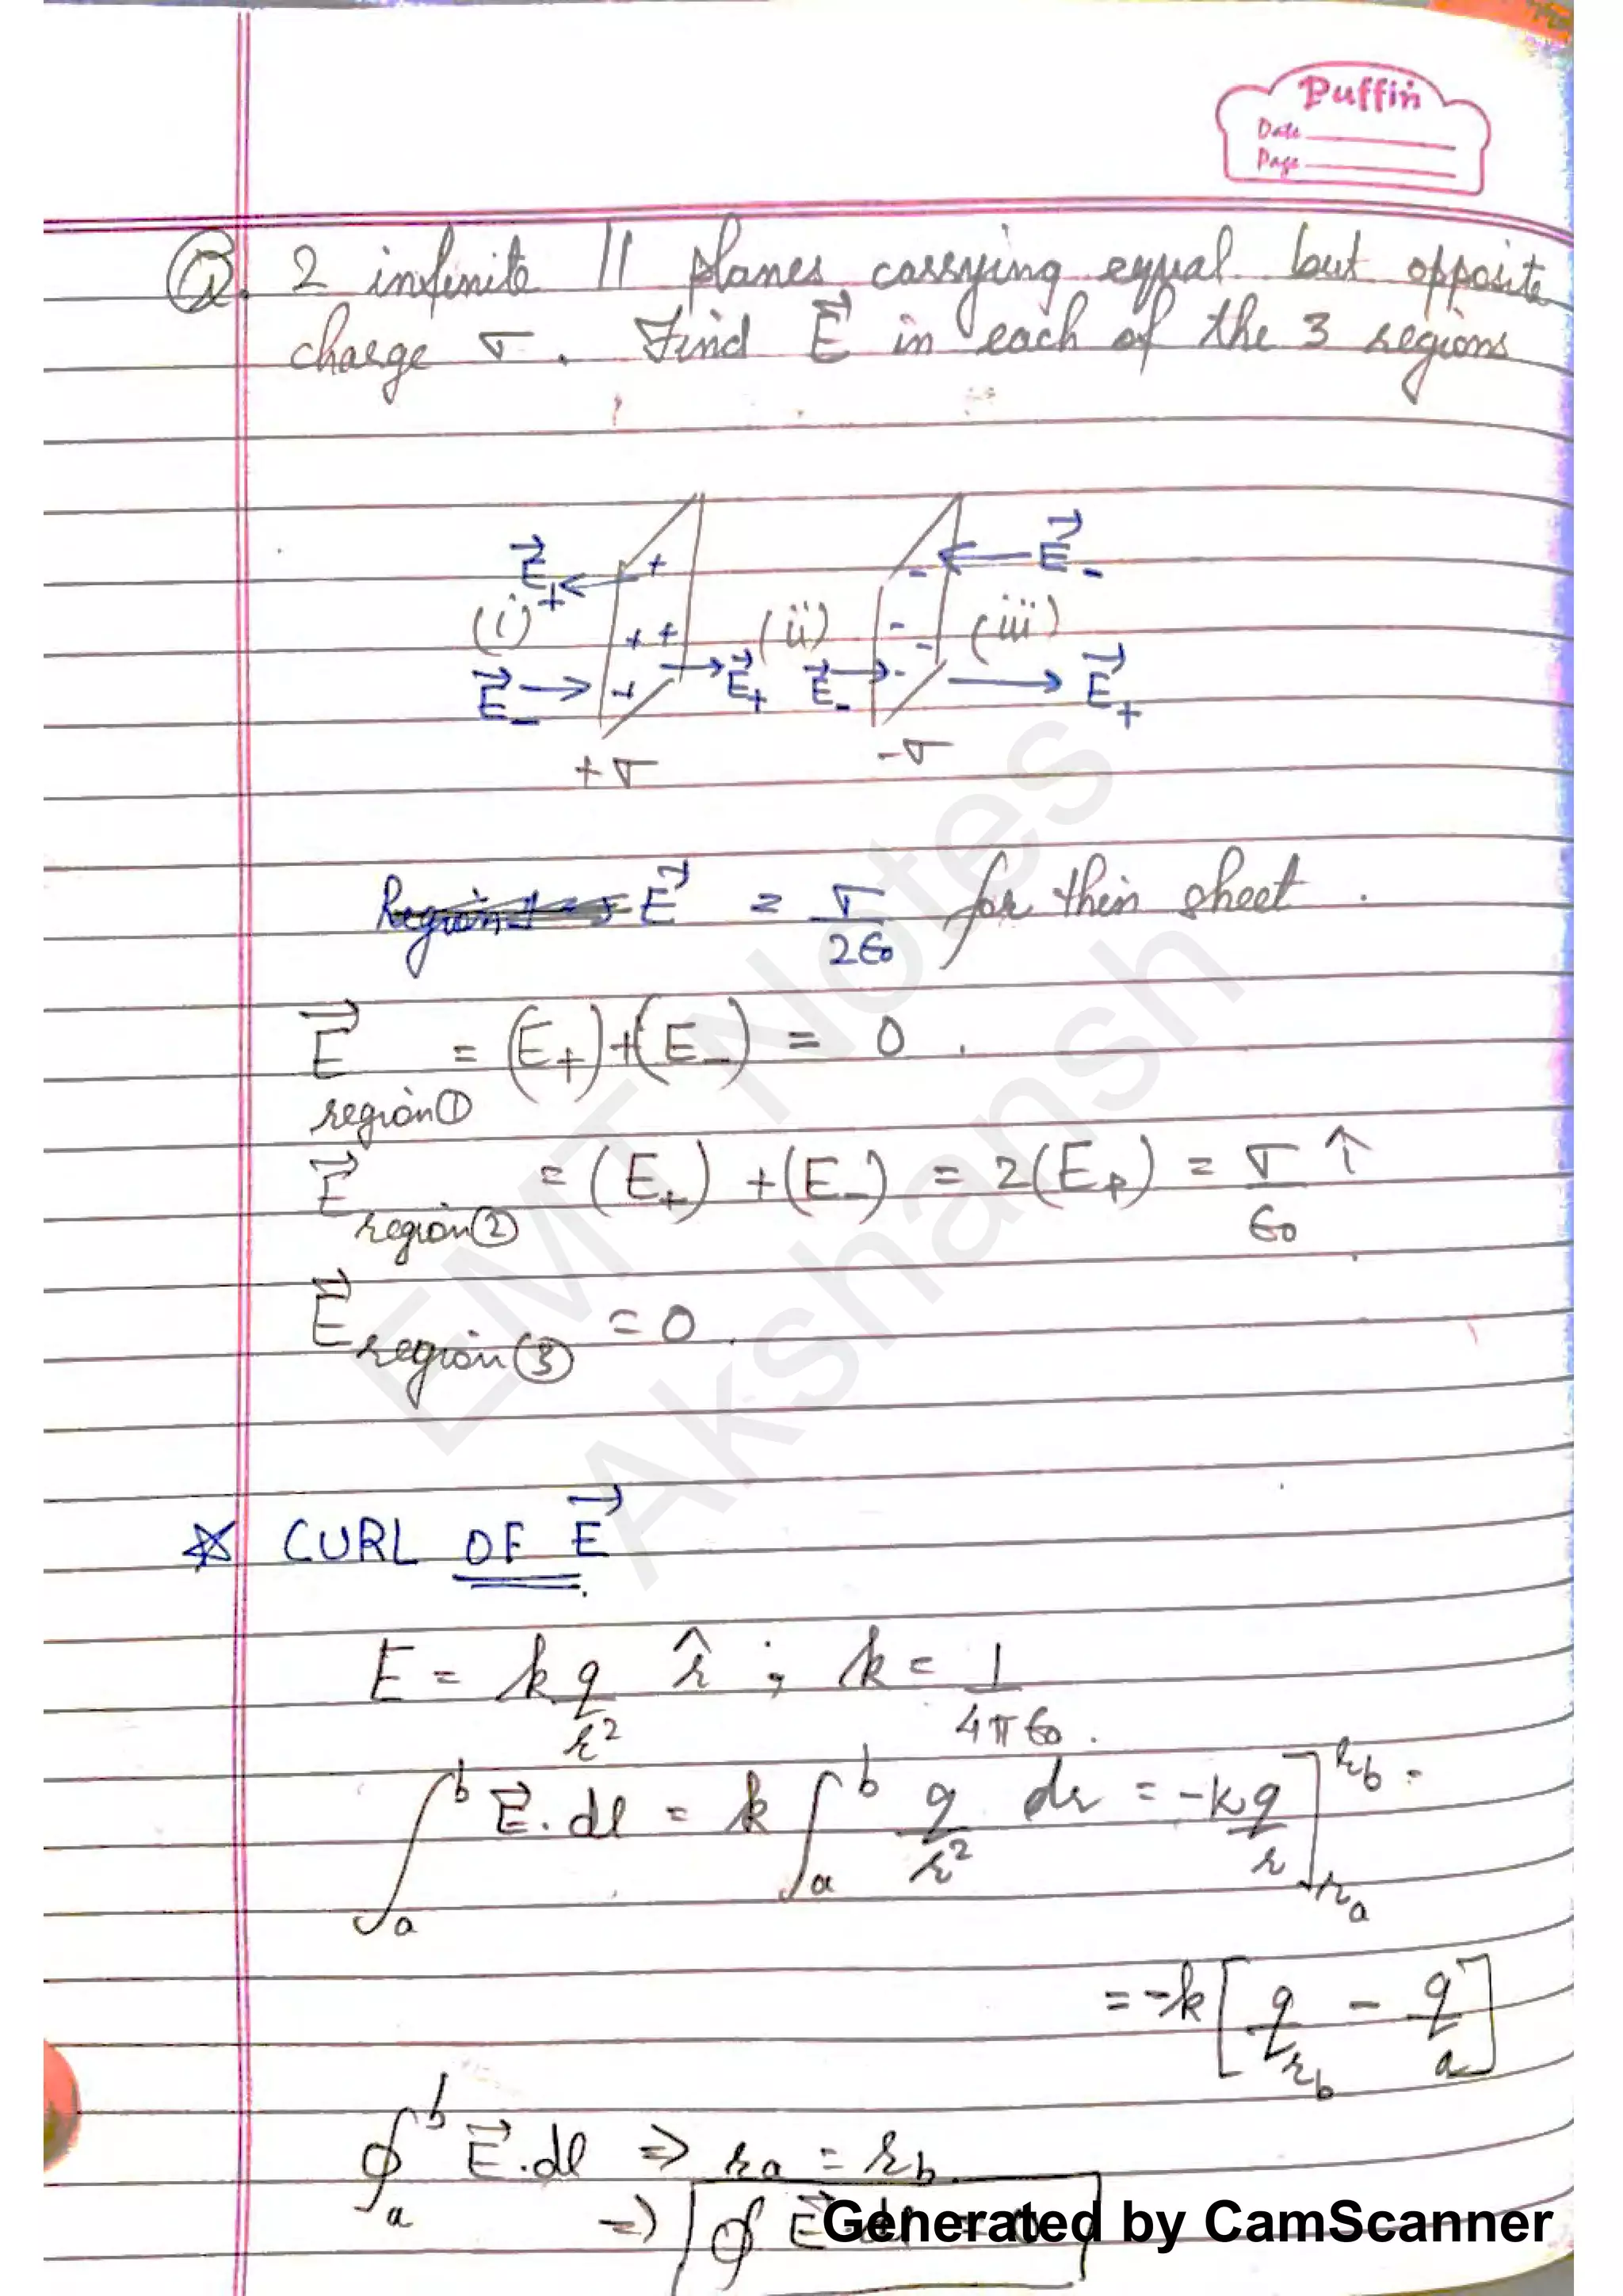 Puffin
Date
Page
Q. 2 infinite || planes carrying equal but opposite
charge σ. Find E⃗ in each of the 3 regions
E⃗+ + - E⃗-
(i) + + (ii) - - (iii)
E⃗- + E⃗+ E⃗- - E⃗+
+σ -σ
E⃗ = σ/2ε₀ for thin sheet.
E⃗ region① = (E+)+(E-) = 0.
E⃗ region② = (E+) + (E-) = 2(E+) = σ/ε₀ ↑
E⃗ region③ = 0.
☆ CURL OF E⃗
E = k q/r² r̂ ; k = 1/4πε₀.
∫ₐᵇ E⃗.dl = k ∫ₐᵇ q/r² dr = -kq/r ]_{r_a}^{r_b} =
= -k [ q/r_b - q/a ]
∮ₐᵇ E⃗.dl => r_a = r_b
=> ∮ E⃗.dl = 0
EMT Notes
Akshansh
Generated by CamScanner